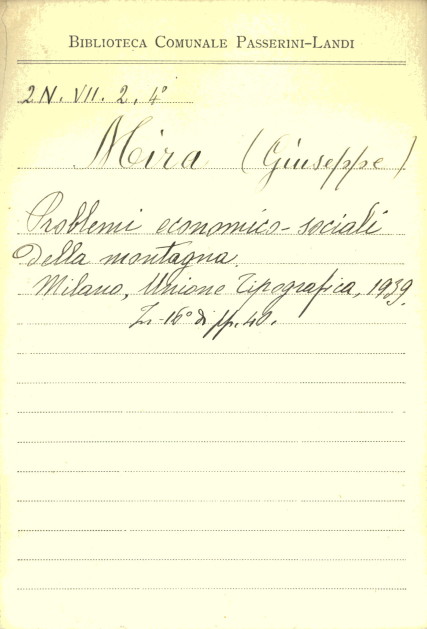 BIBLIOTECA COMUNALE PASSERINI-LANDI
2N. VII. 2. 4°
Mira (Giuseppe)
Problemi economico-sociali
della montagna.
Milano, Unione Tipografica, 1939.
In-16° di pp. 40.